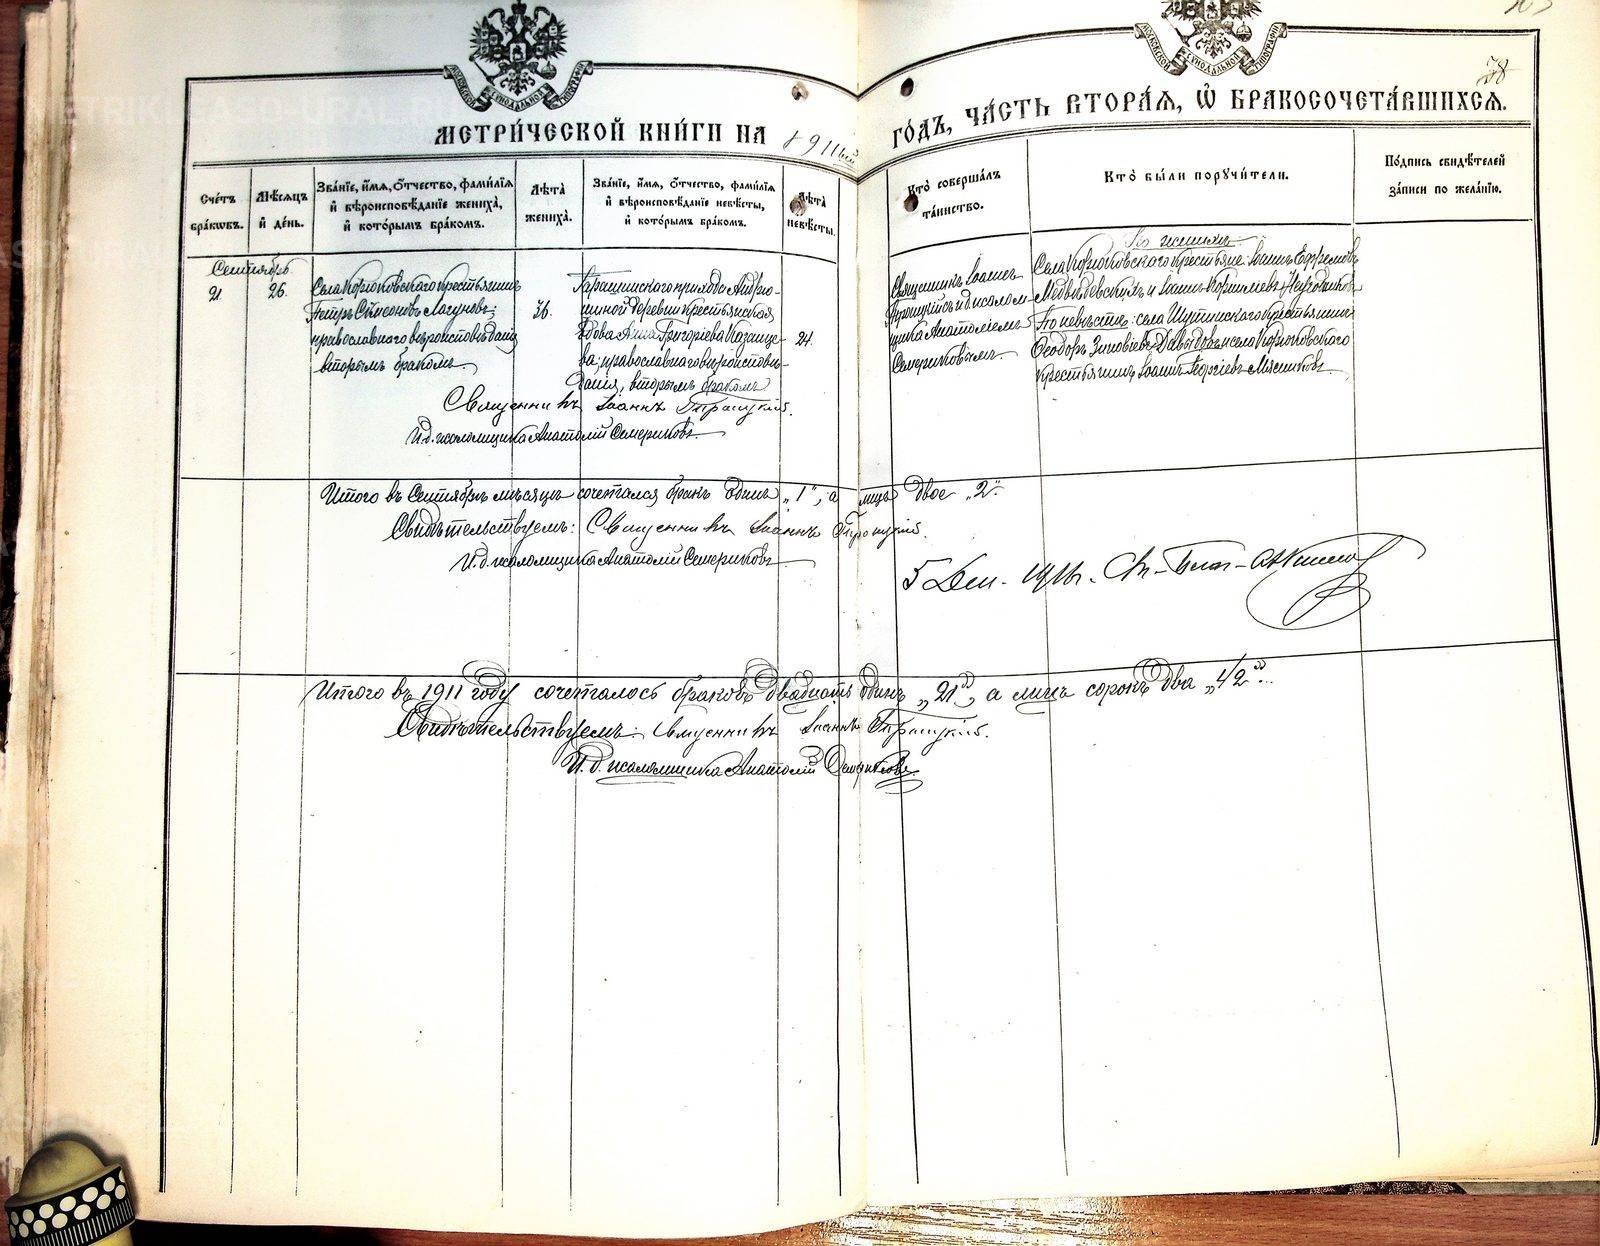 МЕТРИ́ЧЕСКОЙ КНИ́ГИ НА 1911ый ГО́ДЪ, ЧА́СТЬ ВТОРА́Я, Ѡ БРАКОСОЧЕТА́ВШИХСЯ.
Сче́тъ бра́кѡвъ.
Мѣ́сяцъ и де́нь.
Зва́нїе, и́мя, о́тчество, фами́лїя и вѣроисповѣ́данїе жениха̀, и кото́рымъ бра́комъ.
Лѣ́та жениха̀.
Зва́нїе, и́мя, о́тчество, фами́лїя и вѣроисповѣ́данїе невѣ́сты, и кото́рымъ бра́комъ.
Лѣ́та невѣ́сты.
Кто̀ соверша́лъ та́инство.
Кто̀ бы́ли поручи́тели.
По́дпись свидѣ́телей за́писи по жела́нїю.
Сентябрь
21
26.
Села Корюковскаго крестьянинъ
Петръ Сѷмеоновъ Лагуновъ;
православнаго вѣроисповѣданія
вторымъ бракомъ.
26.
прихода Андрю-
шиной деревни крестьянская
вдова Анна Григоріева Казанце-
ва; православнаго вѣроисповѣ-
данія, вторымъ бракомъ
24.
Священникъ Іоаннъ
и и. д. псалом-
щика Анатоліемъ
Семериковымъ.
По женихѣ:
Села Корюковскаго крестьяне: Іоаннъ Ефремовъ
Медвѣдевскихъ и Іоаннъ
По невѣстѣ: села Шутинскаго крестьянинъ
Ѳеодоръ Зиновіевъ Давыдовъ и села Корюковскаго
крестьянинъ Іоаннъ Георгіевъ Мясниковъ.
Священникъ Іоаннъ
И. д. псаломщика Анатолій Семериковъ.
Итого въ Сентябрѣ мѣсяцѣ сочетался бракъ одинъ „1“, а лицъ двое „2“.
Свидѣтельствуемъ: Священникъ Іоаннъ
И. д. псаломщика Анатолій Семериковъ
5 Дек. 1911г.
Итого въ 1911 году сочеталось браковъ двадцать одинъ „21“, а лицъ сорокъ два „42“.
Свидѣтельствуемъ: Священникъ Іоаннъ
И. д. псаломщика Анатолій Семериковъ.